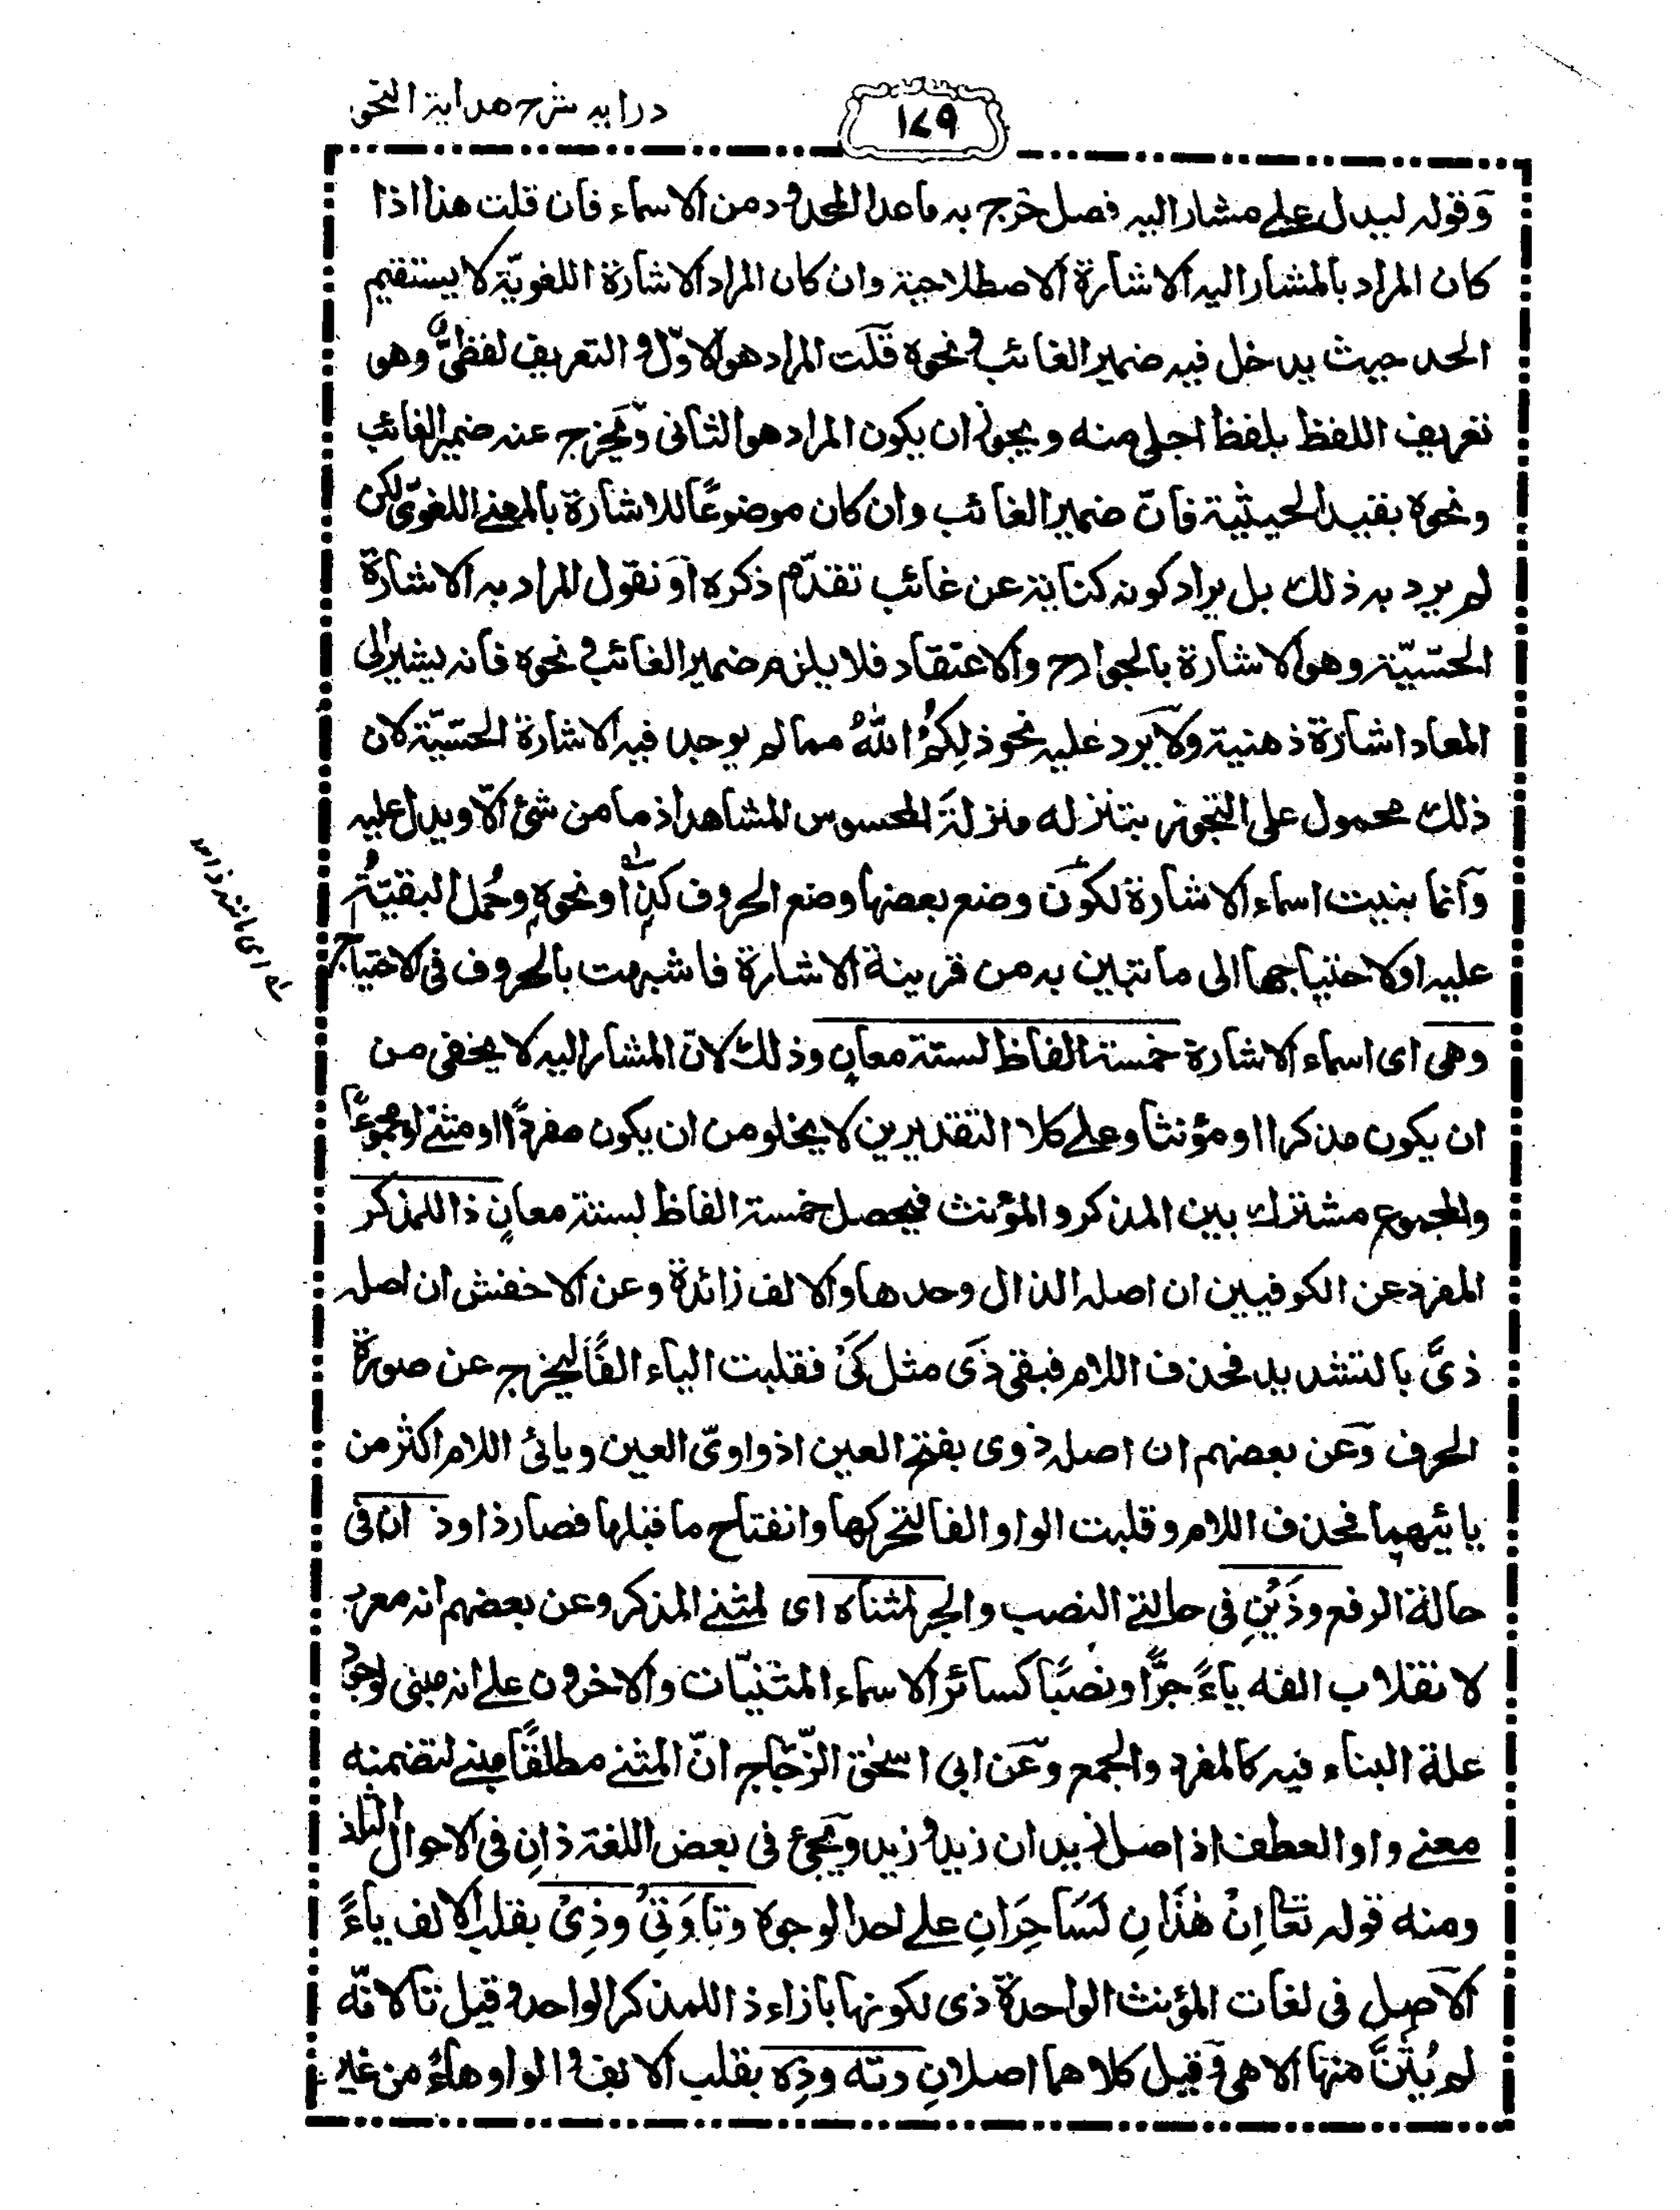 درايه شرح هداية النحو
١٧٩
وقوله ليدل على مشار اليه فصل خرج به ما عدا المحدود من الاسماء فان قلت هذا اذا
كان المراد بالمشار اليه الاشارة الاصطلاحية وان كان المراد الاشارة اللغويّة لا يستقيم
الحد حيث يدخل فيه ضمير الغائب و نحوه قلت المراد هو الاوّل و التعريف لفظىٌّ وهو
تعريف اللفظ بلفظ اجلى منه ويجوز ان يكون المراد هو الثانى ويخرج عنه ضمير الغائب
ونحوه بقيد الحيثية فانّ ضمير الغائب وان كان موضوعًا للاشارة بالمعنے اللغوىّ لكن
لم يرد به ذلك بل يراد كونه كناية عن غائب تقدّم ذكره او نقول المراد به الاشارة
الحسّيّة وهو الاشارة بالجوارح والاعتقاد فلا يلزم ضمير الغائب و نحوه فانه يشير الى
المعاد اشارة ذهنية ولا يرد عليه نحو ذٰلِكُمُ اللّٰهُ مما لم يوجد فيه الاشارة الحسّيّة لان
ذلك محمول على التجوز بتنزله منزلةَ المحسوس المشاهد اذ ما من شئ الّا ويدل عليه
وانما بنيت اسماء الاشارة لكون وضع بعضها وضع الحروف كذا او نحوه وحُمل البقيّةُ
عليه او لاحتياجها الى ما تبين به من قرينة الاشارة فاشبهت بالحروف فى الاحتياج
وهى اى اسماء الاشارة خمسة الفاظ لستة معانٍ وذلك لانّ المشار اليه لا يخفى من
ان يكون مذكرا او مؤنثا وعلے كلا التقديرين لا يخلو من ان يكون مفردًا او مثنے او مجموعًا
والمجموع مشترك بين المذكر و المؤنث فيحصل خمسة الفاظ لستة معانٍ ذا للمذكر
المفرد عن الكوفيين ان اصله الذال وحدها والالف زائدة وعن الاخفش ان اصله
ذىّ بالتشديد فحذف اللام فبقى ذَى مثل كَىْ فقلبت الياء الفًا ليخرج عن صورة
الحرف وعن بعضهم ان اصله ذوى بفتح العين اذ واوىّ العين ويائ اللام اكثر من
يائيهما فحذف اللام وقلبت الواو الفا لتحركها وانفتاح ما قبلها فصار ذا وذ ان فى
حالة الرفع وذَيْنِ فى حالتے النصب والجر لمثناه اى لمثنے المذكر وعن بعضهم انه معرب
لانقلاب الفه ياءً جرًّا ونصبًا كسائر الاسماء المثنيّات والاخرون علے انه مبنى لوجود
علة البناء فيه كالمفرد والجمع وعن ابى اسحٰق الزّجّاج انّ المثنے مطلقًا مبنے لتضمنه
معنے واو العطف اذ اصل زيدان زيد و زيد ويجئ فى بعض اللغة ذانِ فى الاحوال الثلاث
ومنه قوله تعا اِنْ هٰذَانِ لَسَاحِرَانِ علے احد الوجوه وتا وَتِىْ وذِىْ بقلب الالف ياءً
الاصل فى لغات المؤنث الواحدة ذى لكونها بازاء ذا للمذكر الواحد و قيل تا لانّه
لم يُثَنَّ منها الا هى و قيل كلاهما اصلانِ وته وذِه بقلب الالف و الواو هاءً من غير